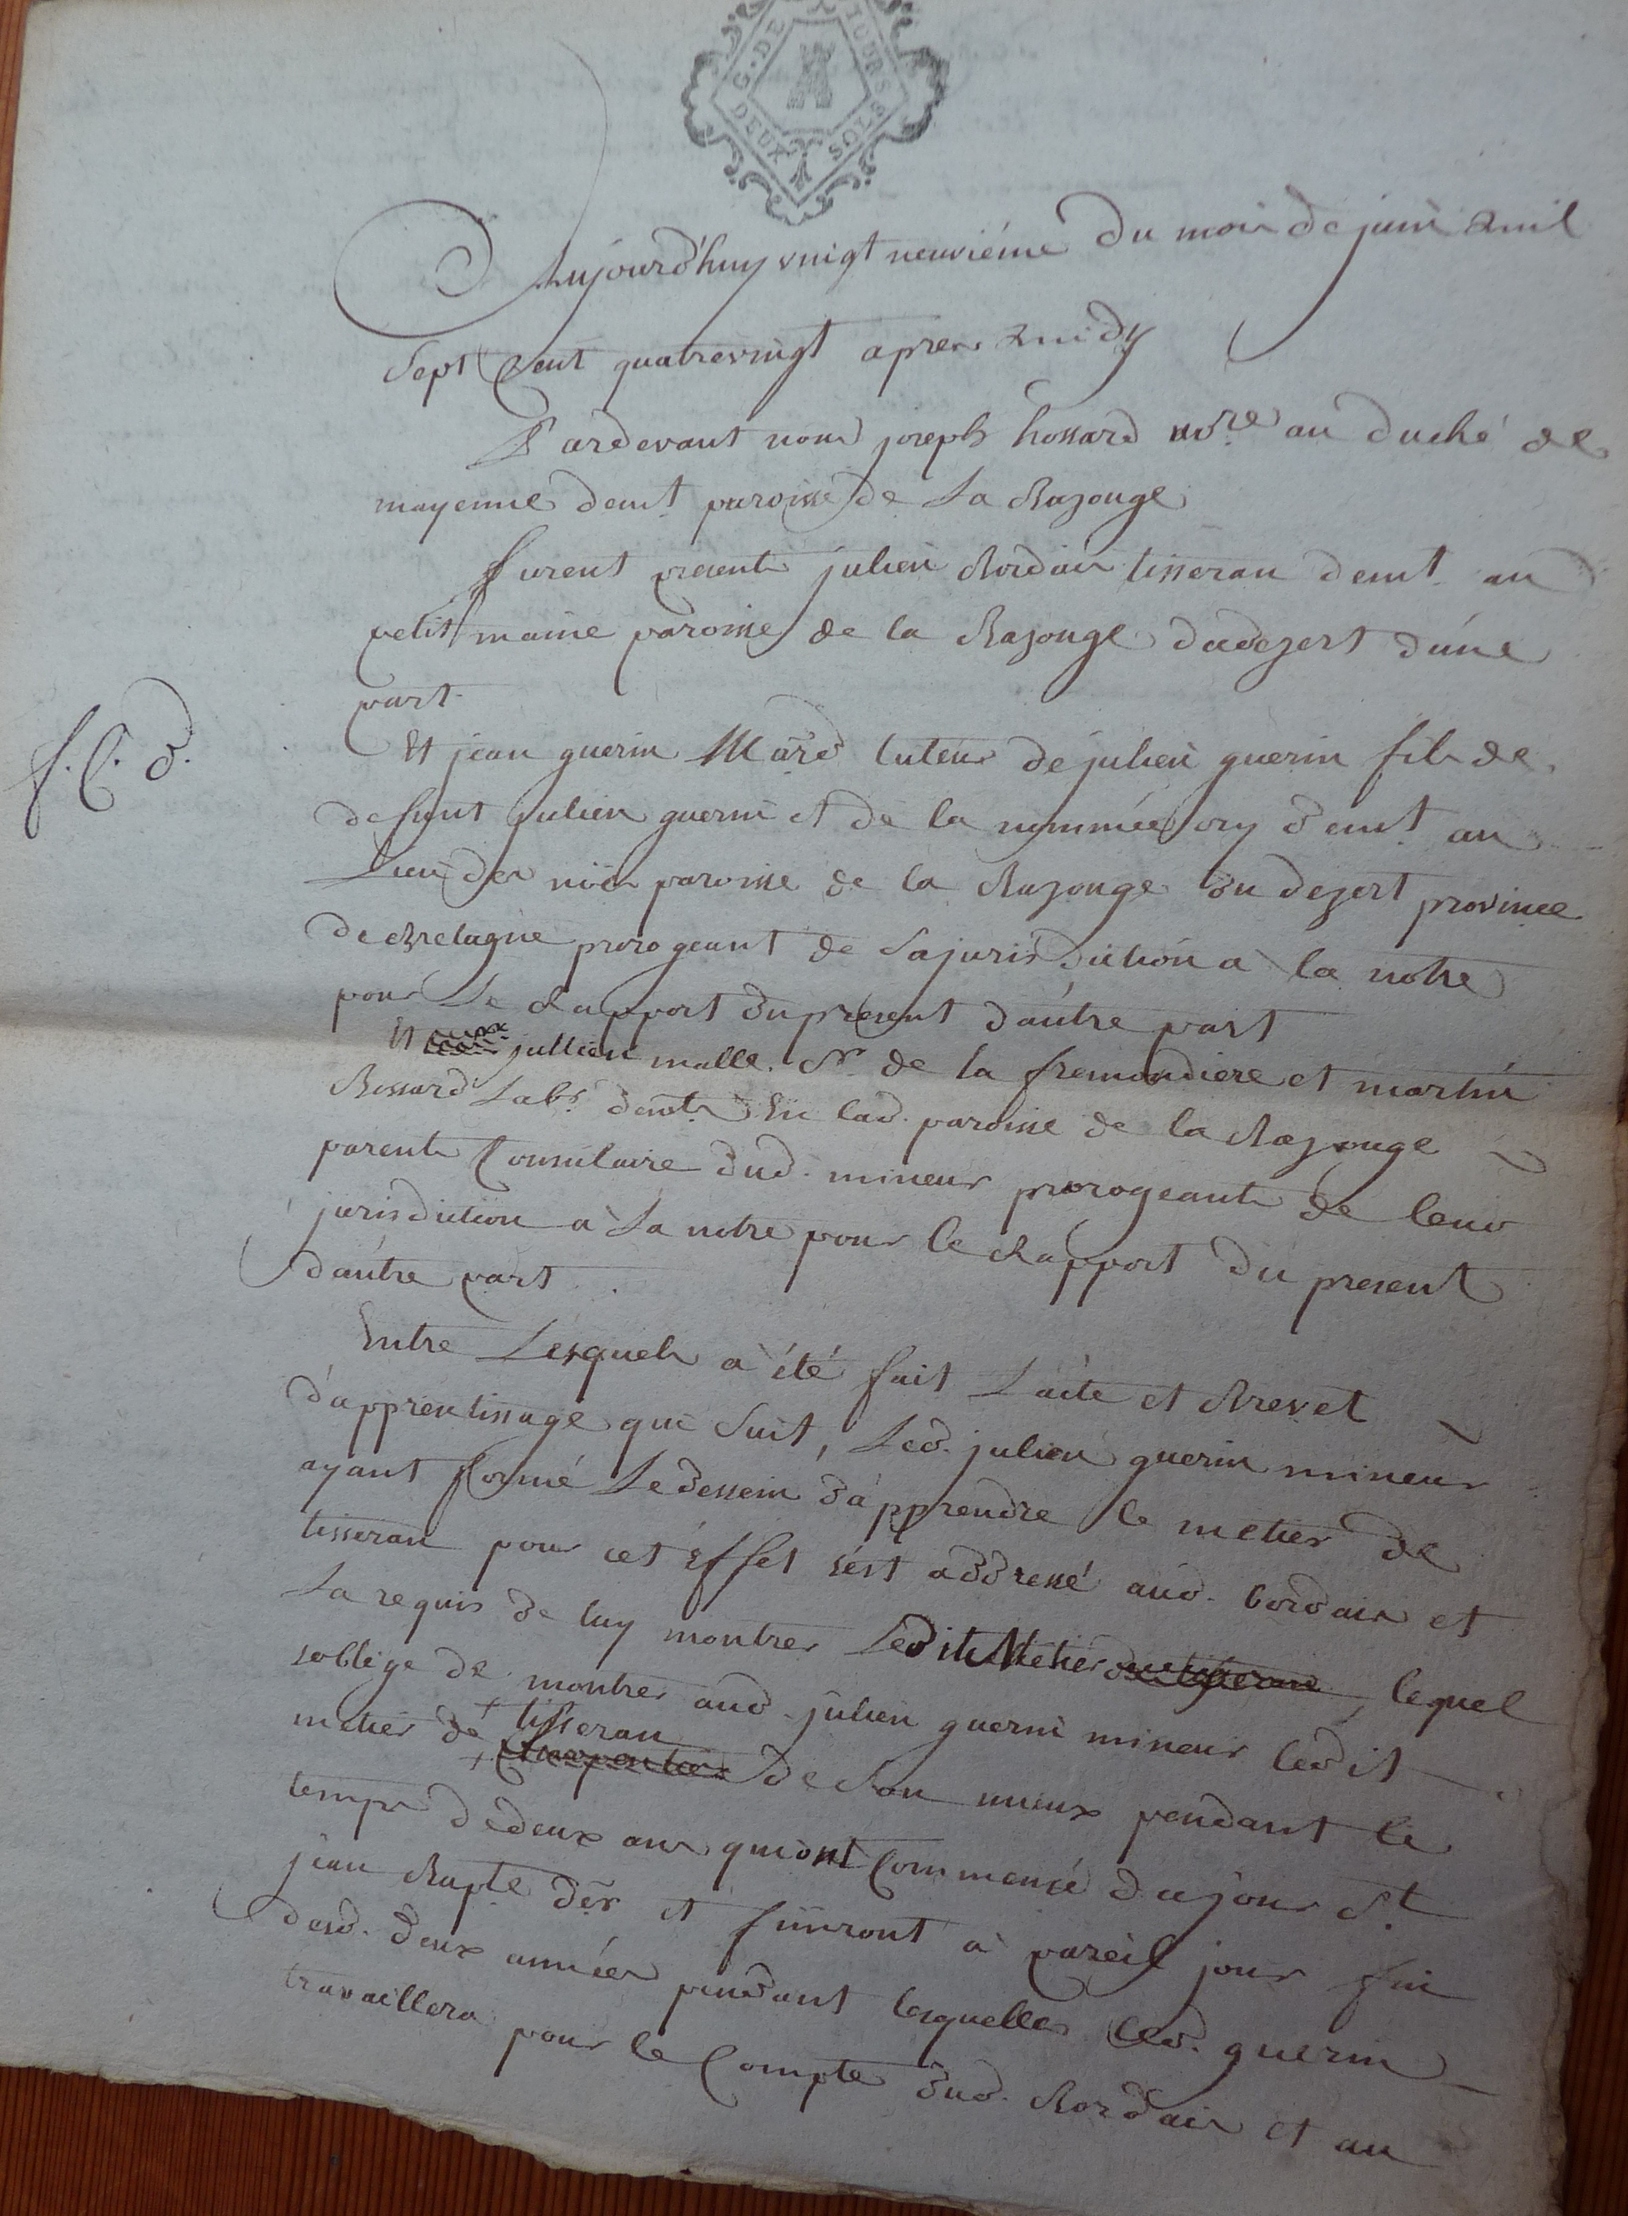 G. DE TOURS
DEUX SOLS
Aujourd'huy vingt neuviéme du mois de juin mil
Sept Cent quatrevingt apres midy
Pardevant nous joseph hossard nore. au duché de
mayenne demt. paroisse de La Bazouge
furent presents julien Bordais tisseran demt. au
petit maine paroisse de la Bazouge dudezert d'une
part.
Et jean guerin Mard tuteur de julien guerin fils de
defunt julien guerin et de la nommée ory demt. au
Lieu des paroisse de la Bazouge du dezert province
de Bretagne prorogeant de sa jurisdiction a la notre
pour Le Rapport du present d'autre part
Et jullien malle. Sr. de la fremondiere et martin
Bossard Labr. demts. En lad. paroisse de la Bazouge
parents Consulaire dud. mineur prorogeants de leur
jurisdiction a La notre pour le Rapport du present
d'autre part.
Entre Lesquels a été fait L'acte et Brevet
d'apprentissage qui Suit, Led. julien guerin mineur
ayant formé Le dessein d'apprendre le metier de
tisseran pour cet Effet s'est addressé aud. bordais et
La requis de luy montrer Ledit Metier de tisseran, lequel
soblige de montrer aud. julien guerin mineur ledit
metier de + tisseran
+ Charpentier de Son mieux pendant le
temps de deux ans qui ont Commencé du jour St.
jean Bapte. der. et finiront a pareil jour fin
desd. deux années pendant lesquelles led. guerin
travaillera pour le Compte dud. Bordais et au
f. C. d.